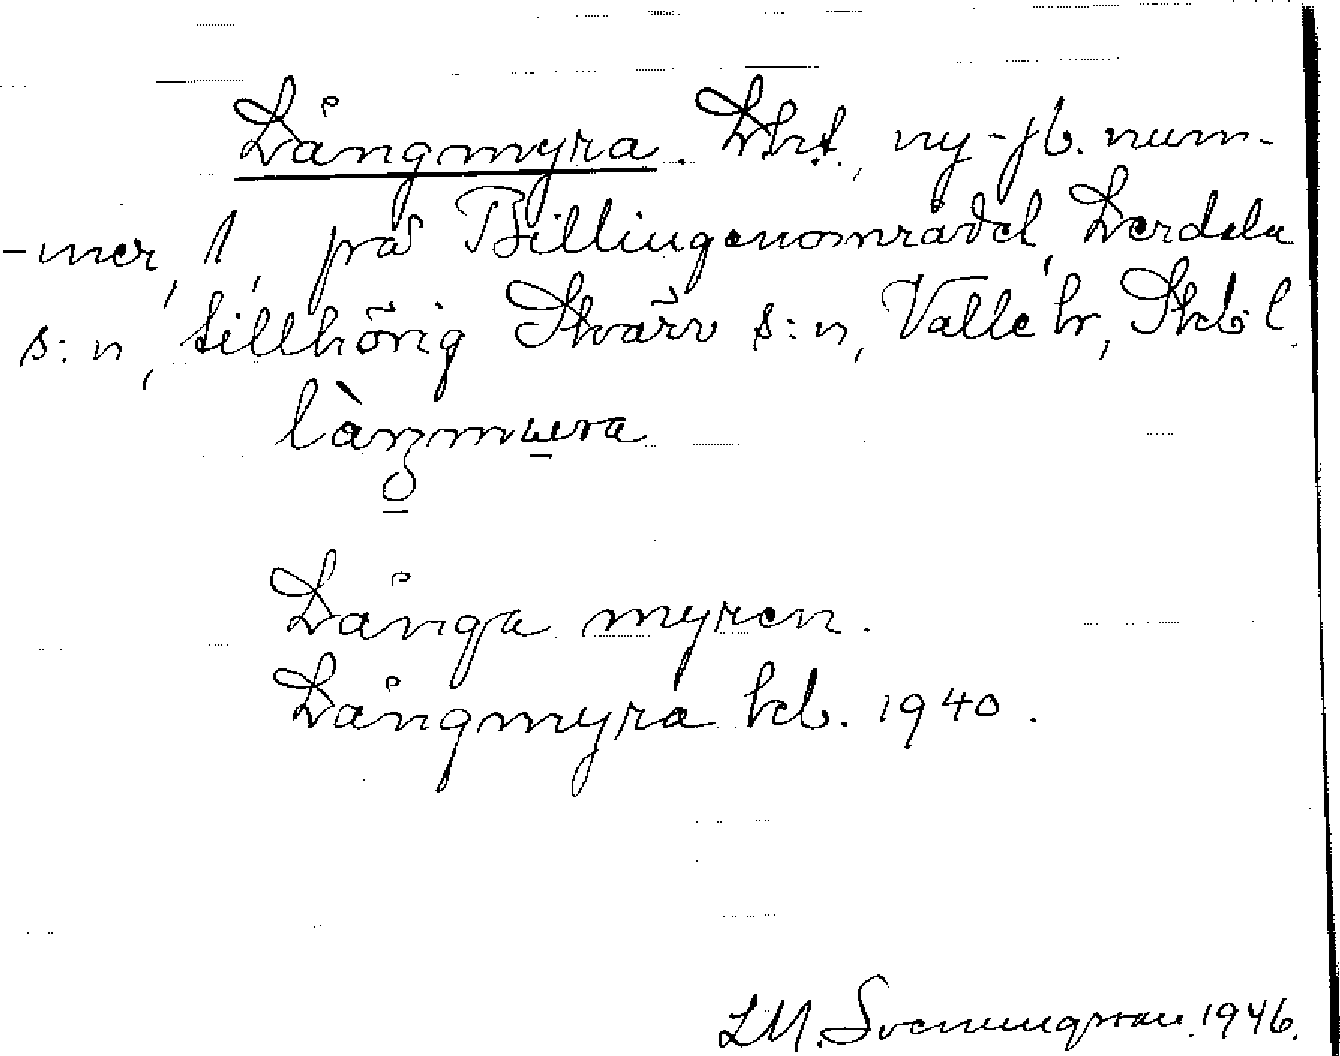 Långmyra. Lht., ny-jb. num-
-mer, 1, på Billingenområdet, Lerdala
s:n, tillhörig Skärv s:n, Valle hr, Skb. l.
Långa myren.
Långmyra kb. 1940.
L.M. Svenungsson. 1946.